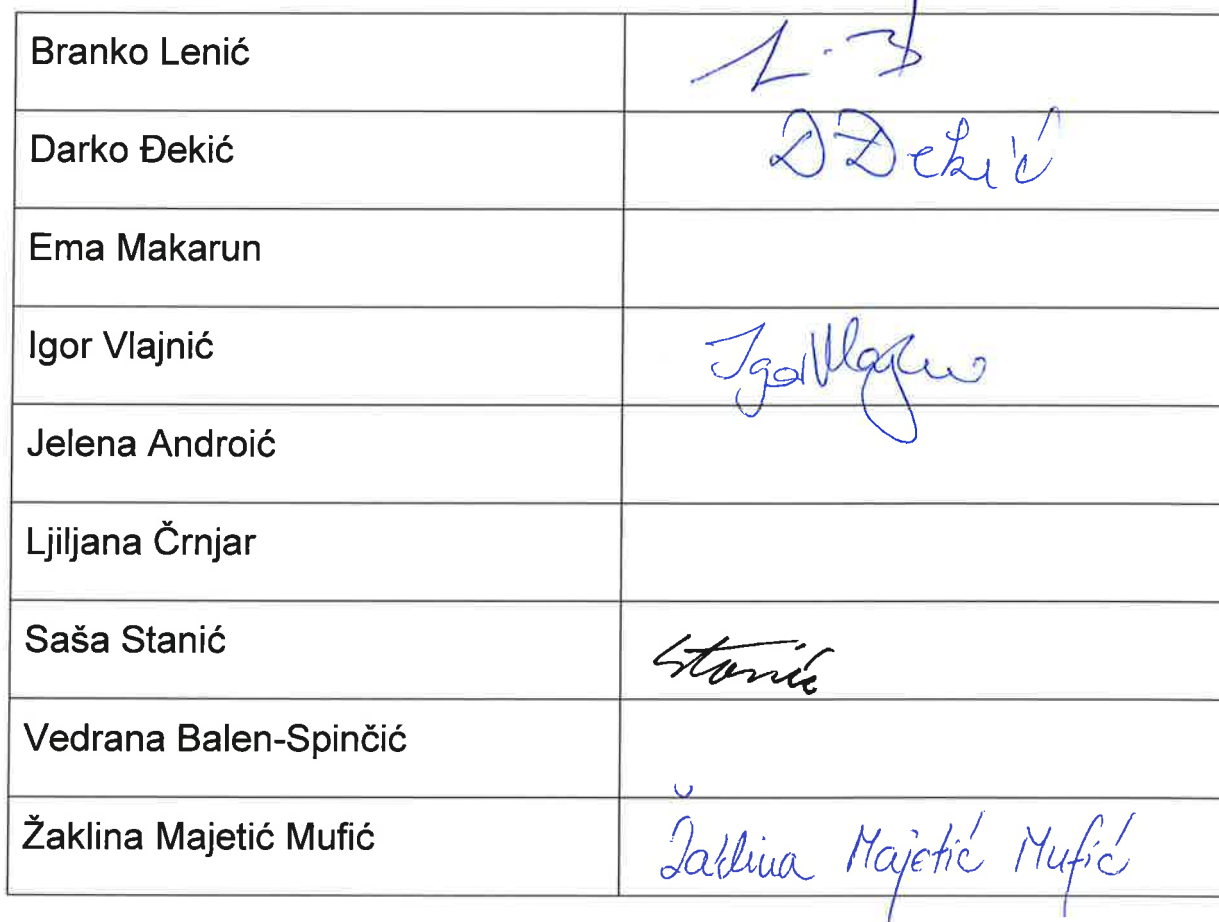 Branko Lenić
Darko Đekić DĐekić
Ema Makarun
Igor Vlajnić Igor
Jelena Androić
Ljiljana Črnjar
Saša Stanić Stanić
Vedrana Balen-Spinčić
Žaklina Majetić Mufić Žaklina Majetić Mufić